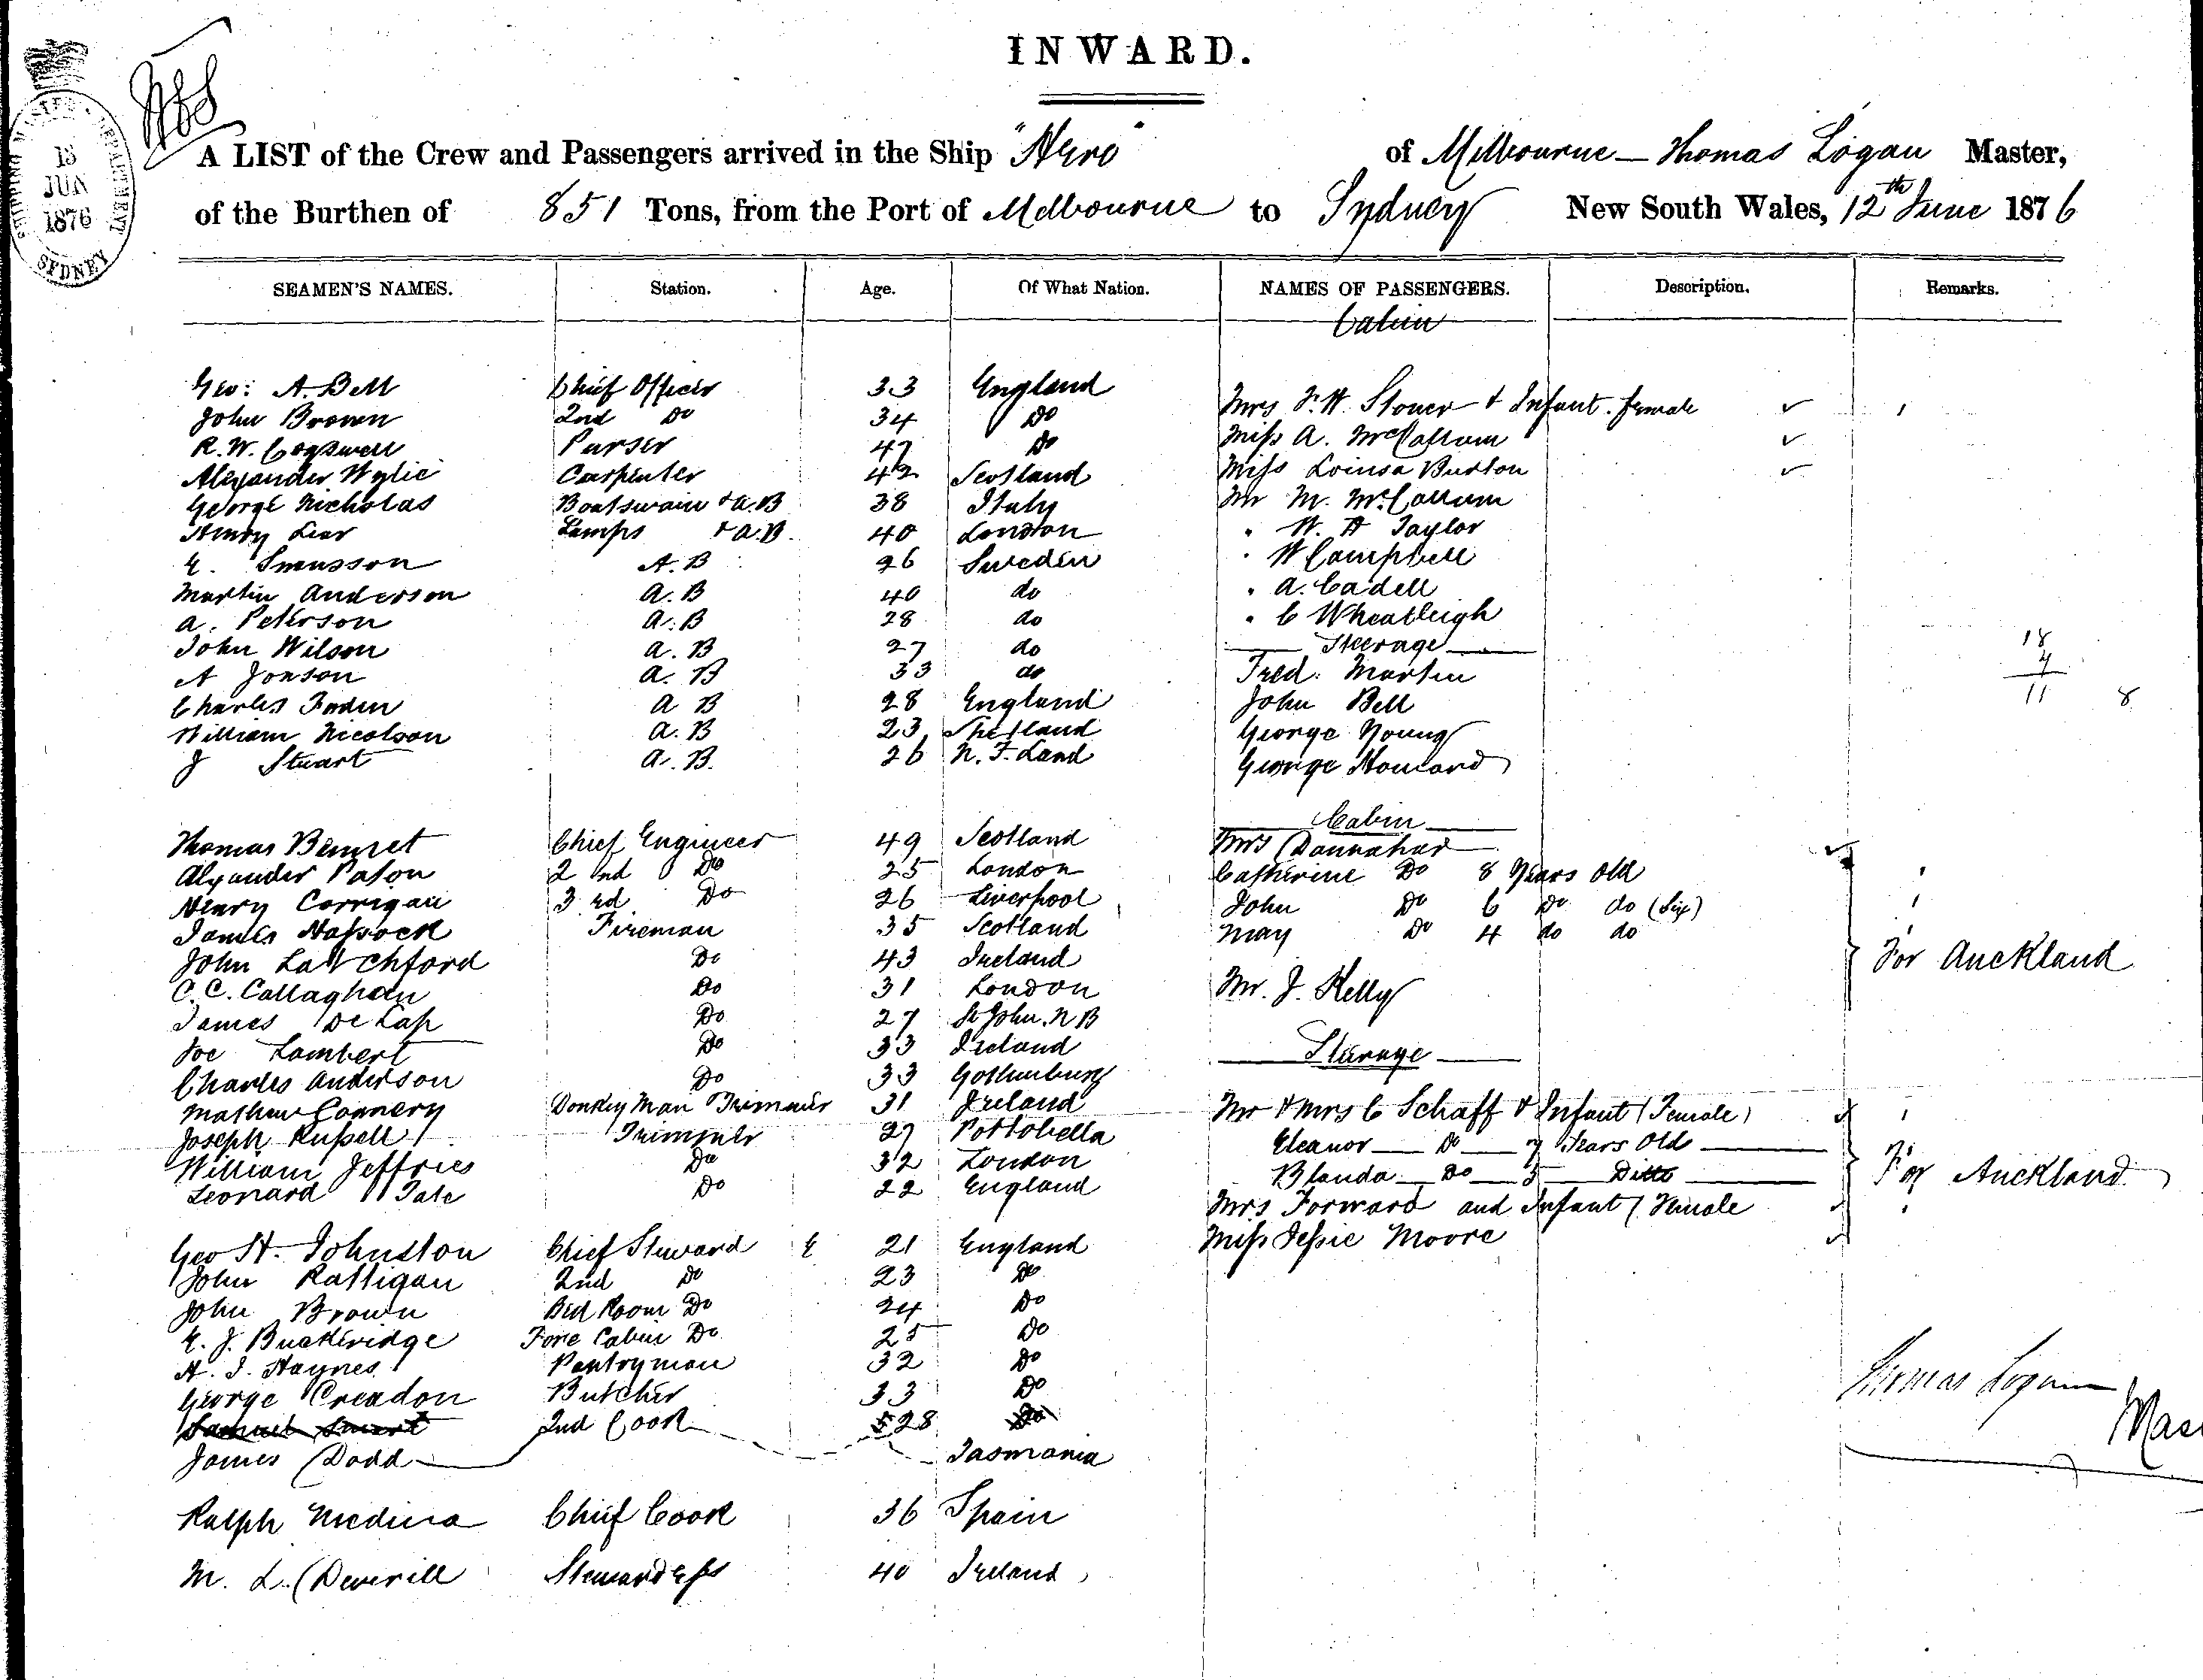 INWARD.
SHIPPING MASTER'S DEPARTMENT
13
JUN
1876
SYDNEY
A LIST of the Crew and Passengers arrived in the Ship "Hero" of Melbourne — Thomas Logan Master,
of the Burthen of 851 Tons, from the Port of Melbourne to Sydney New South Wales, 12th June 1876
SEAMEN'S NAMES. Station. Age. Of What Nation. NAMES OF PASSENGERS. Description. Remarks.
Cabin
Geo: A. Bell Chief Officer 33 England
John Brown 2nd Do 34 Do Mrs F. H. Stoner & Infant. female
R. W. Cogswell Purser 47 Do Miss A. McCallum
Alexander Wylie Carpenter 42 Scotland Miss Louisa Burton
George Nicholas Boatswain & A.B 38 Italy Mr M. McCallum
Henry Lear Lamps & A.B. 40 London " W. H Taylor
E. Swensson A.B 26 Sweden " W Campbell
Martin Anderson A.B 40 do " A. Cadell
A. Peterson A.B 28 do " C Wheatleigh
John Wilson A.B 27 do Steerage 18
A Jonson A.B 33 do Fred. Martin 7
Charles Foden A B 28 England John Bell 11 8
William Nicolson A.B 23 Shetland George Young
J Stuart A.B. 26 N.F. Land George Howard
Cabin
Thomas Bennet Chief Engineer 49 Scotland Mrs Dannahar
Alexander Paton 2nd Do 25 London Catherine Do 8 Years Old
Henry Corrigan 3rd Do 26 Liverpool John Do 6 Do do (Six)
James Hassock Fireman 35 Scotland May Do 4 do do
John Latchford Do 43 Ireland For Auckland
C. C. Callaghan Do 31 London Mr. J. Kelly
James De Lap Do 27 St John. N B
Joe Lambert Do 33 Ireland Steerage
Charles Anderson Do 33 Gothenburg
Mathew Connery Donkey Man Trimmer 31 Ireland Mr & Mrs C Schaff & Infant (Female)
Joseph Russell Trimmer 27 Portobella Eleanor Do 7 Years Old
William Jeffries Do 32 London Blanda Do 5 Ditto For Auckland
Leonard Tate Do 22 England Mrs Forward and Infant (Female
Geo H. Johnston Chief Steward 21 England Miss Jessie Moore
John Rattigan 2nd Do 23 Do
John Brown Bed Room Do 24 Do
E. J. Buckeridge Fore Cabin Do 25 Do
A. J. Haynes Pantryman 32 Do
George Creadon Butcher 33 Do
Samuel Smart 2nd Cook 28 Do
James Dodd Tasmania
Thomas Logan
Mas
Ralph Medina Chief Cook 36 Spain
M. L. Deverill Stewardess 40 Ireland